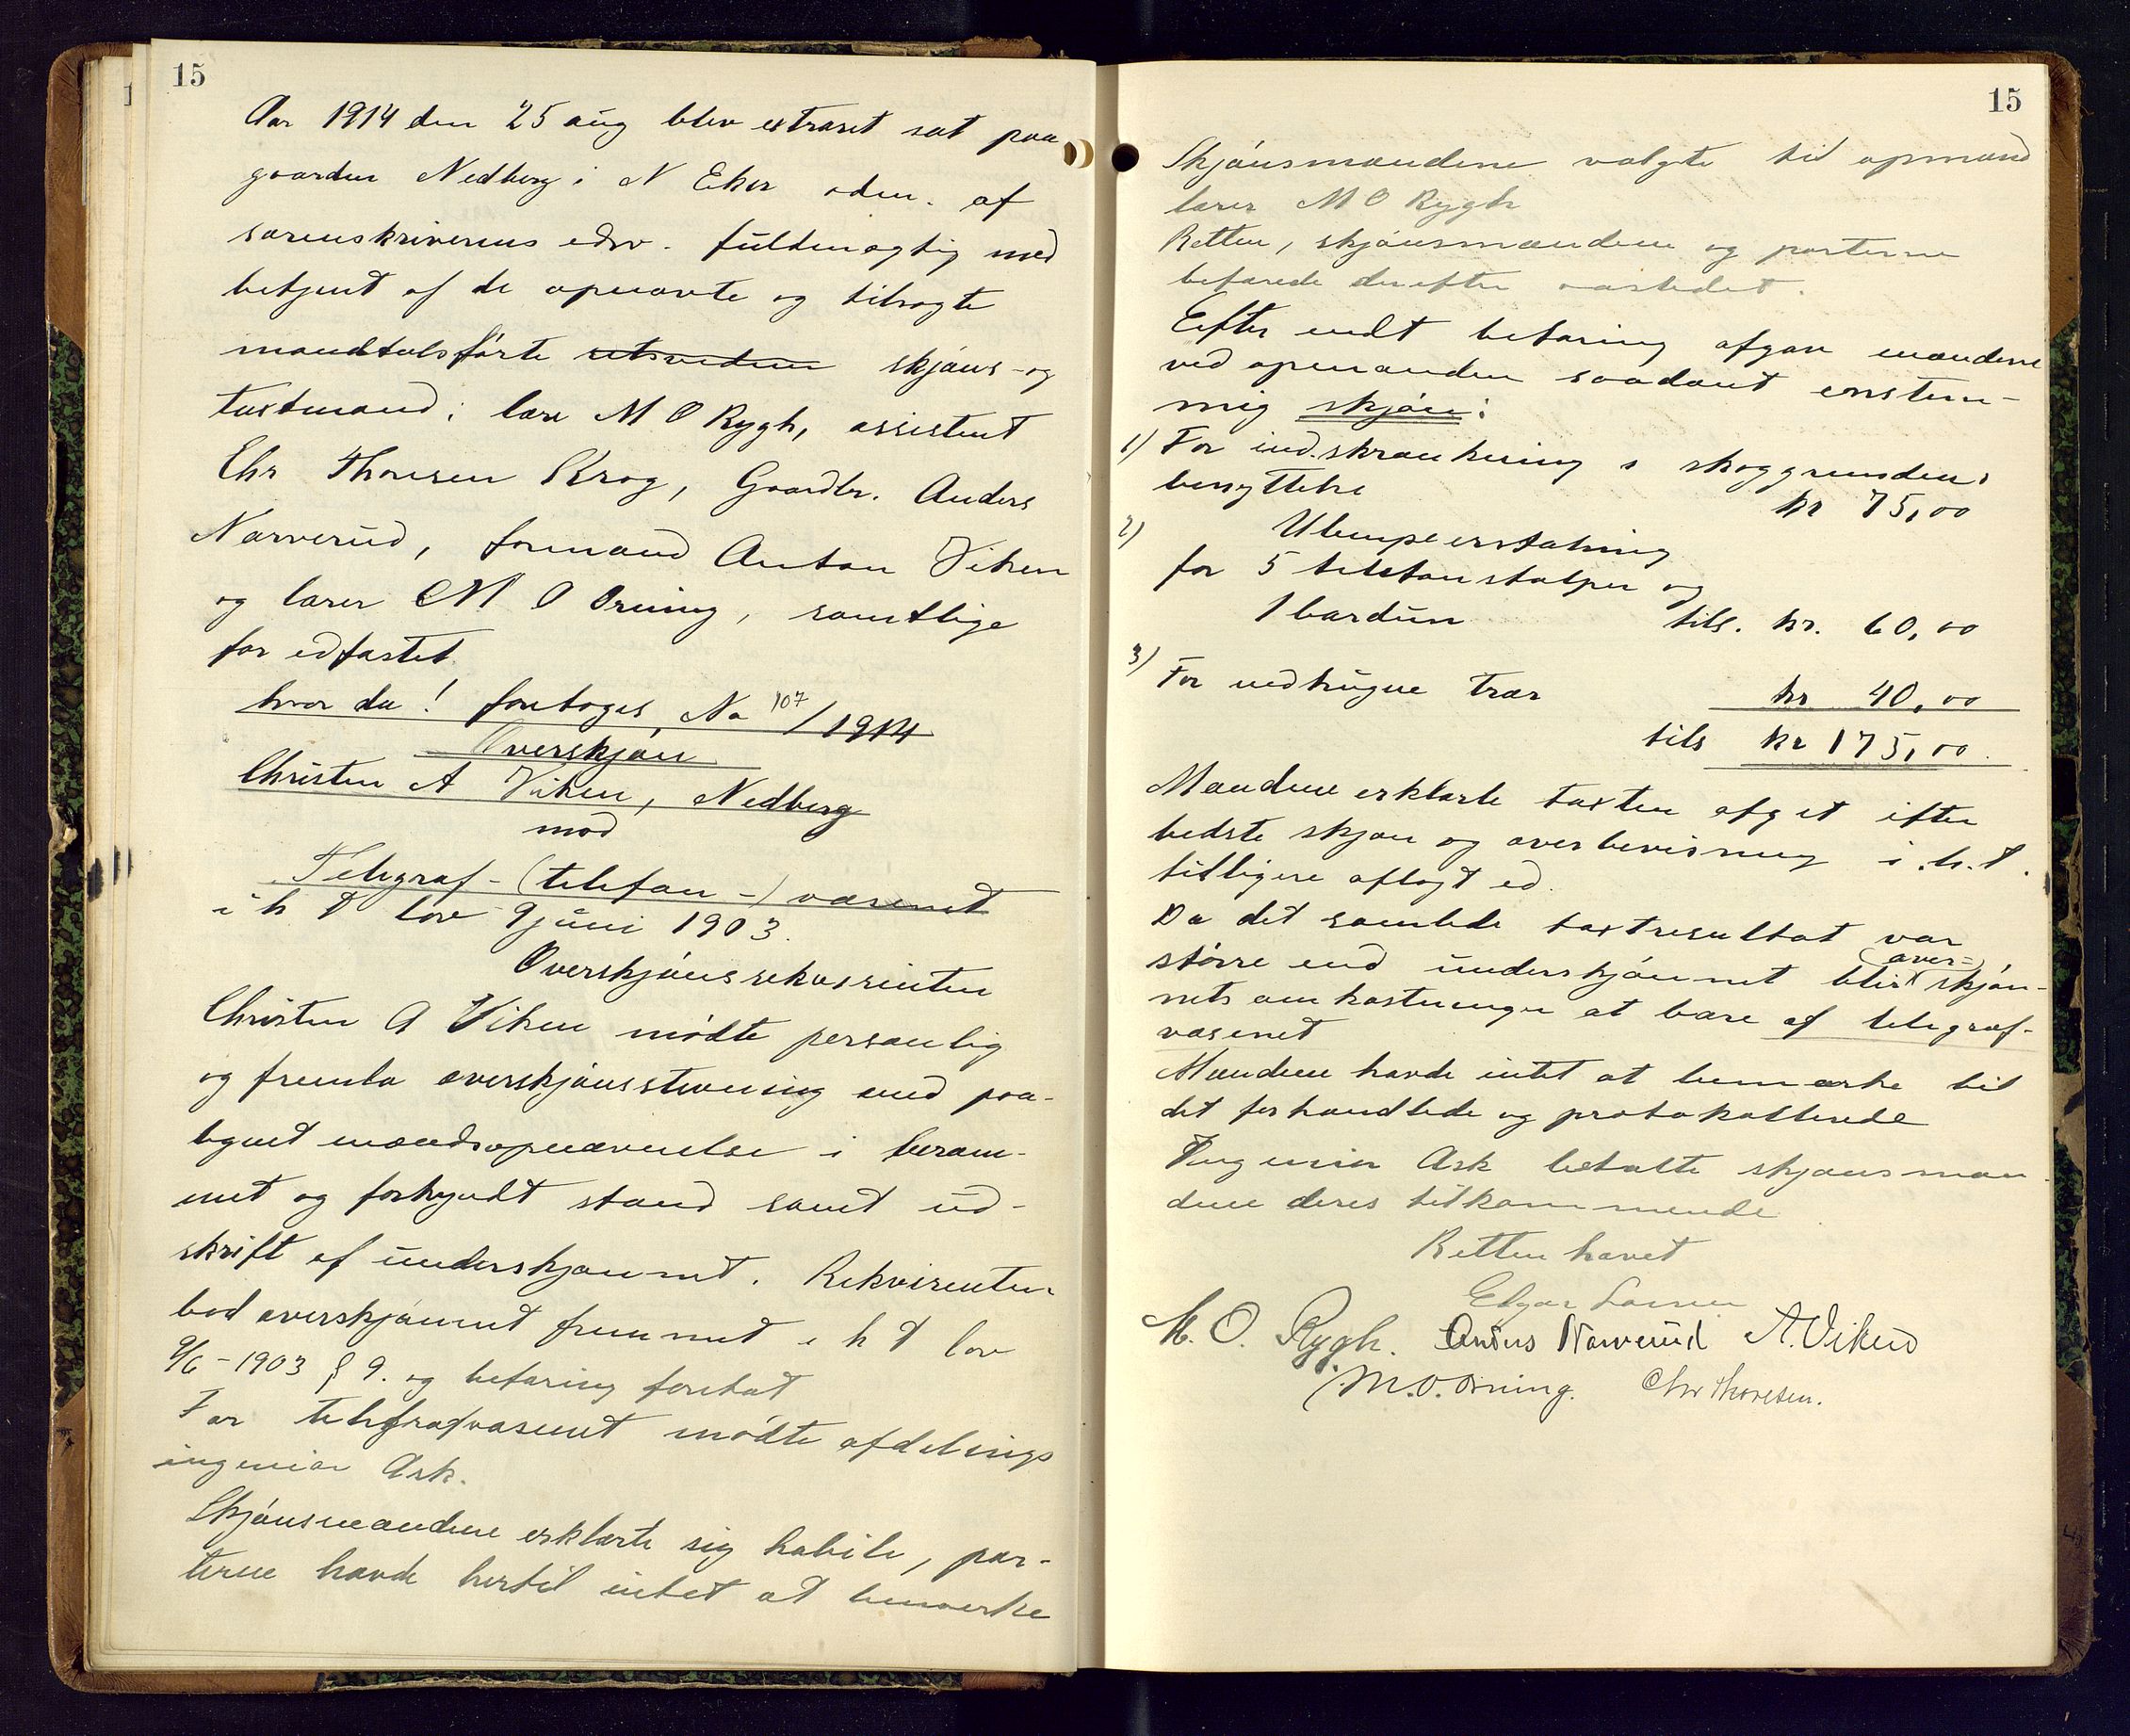 15
Aar 1914 den 25 aug blev extraret sat paa
gaarden Nedberg i N Eker adm. af
sorenskriverens edsv. fuldmægtig med
betjent af de opnævnte og tilsagte
mandtalsførte retsvidne skjøns- og
taxtmænd: lærer M O Rygh, assistent
Chr Thoresen Krog, Gaardbr. Anders
Narverud, formand Anton Viken
og lærer M O Orning, samtlige
før edfæstet.
hvor da! foretoges No 107/1914
Overskjøn
Christen A Viken, Nedberg
mod
Telegraf- (telefon-) væsenet
i h t lov 9 juni 1903.
Overskjønsrekvirenten
Christen A Viken mødte personlig
og fremla overskjønsstevning med paa-
tegnet mændsopnævnelse i beram-
met og forkyndt stand samt ud-
skrift af underskjønnet. Rekvirenten
bad overskjønnet fremmet i h t lov
9/6-1903 § 9. og befaring foretat
For telegrafvæsenet mødte afdelings
ingeniør Ask.
Skjønsmændene erklærte sig habile, par-
terne havde hertil intet at bemerke
15
Skjønsmændene valgte til opmand
lærer M O Rygh
Retten, skjønsmændene og parterne
befarede derefter aastedet.
Efter endt befaring afgav mændene
ved opmanden saadant enstem-
mig skjøn:
1) For indskrænkning i skoggrundens
benyttelse kr 75,00
2) Ulempeerstatning
for 5 telefonstolper og
1 bardun tils. kr. 60,00
3) For nedhugne trær kr 40,00
tils kr 175,00.
Mændene erklærte taxten afgit efter
bedste skjøn og overbevisning i h. t.
tidligere aflagt ed.
Da det samlede taxtresultat var
større end underskjønnet blir over-skjøn-
nets omkostninger at bære af telegraf-
væsenet
Mændene havde intet at bemærke til
det forhandlede og protokollerede
Ingeniør Ask betalte skjønsmæn-
dene deres tilkommende
Retten hævet
Edgar
M. O. Rygh. Anders Narverud A. Viken
M. O. Orning. Chr Thoresen.